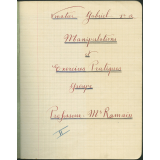 Gabriel
Manipulations
et
Exercices Pratiques
Groupe
Professeur Mr Romain
II